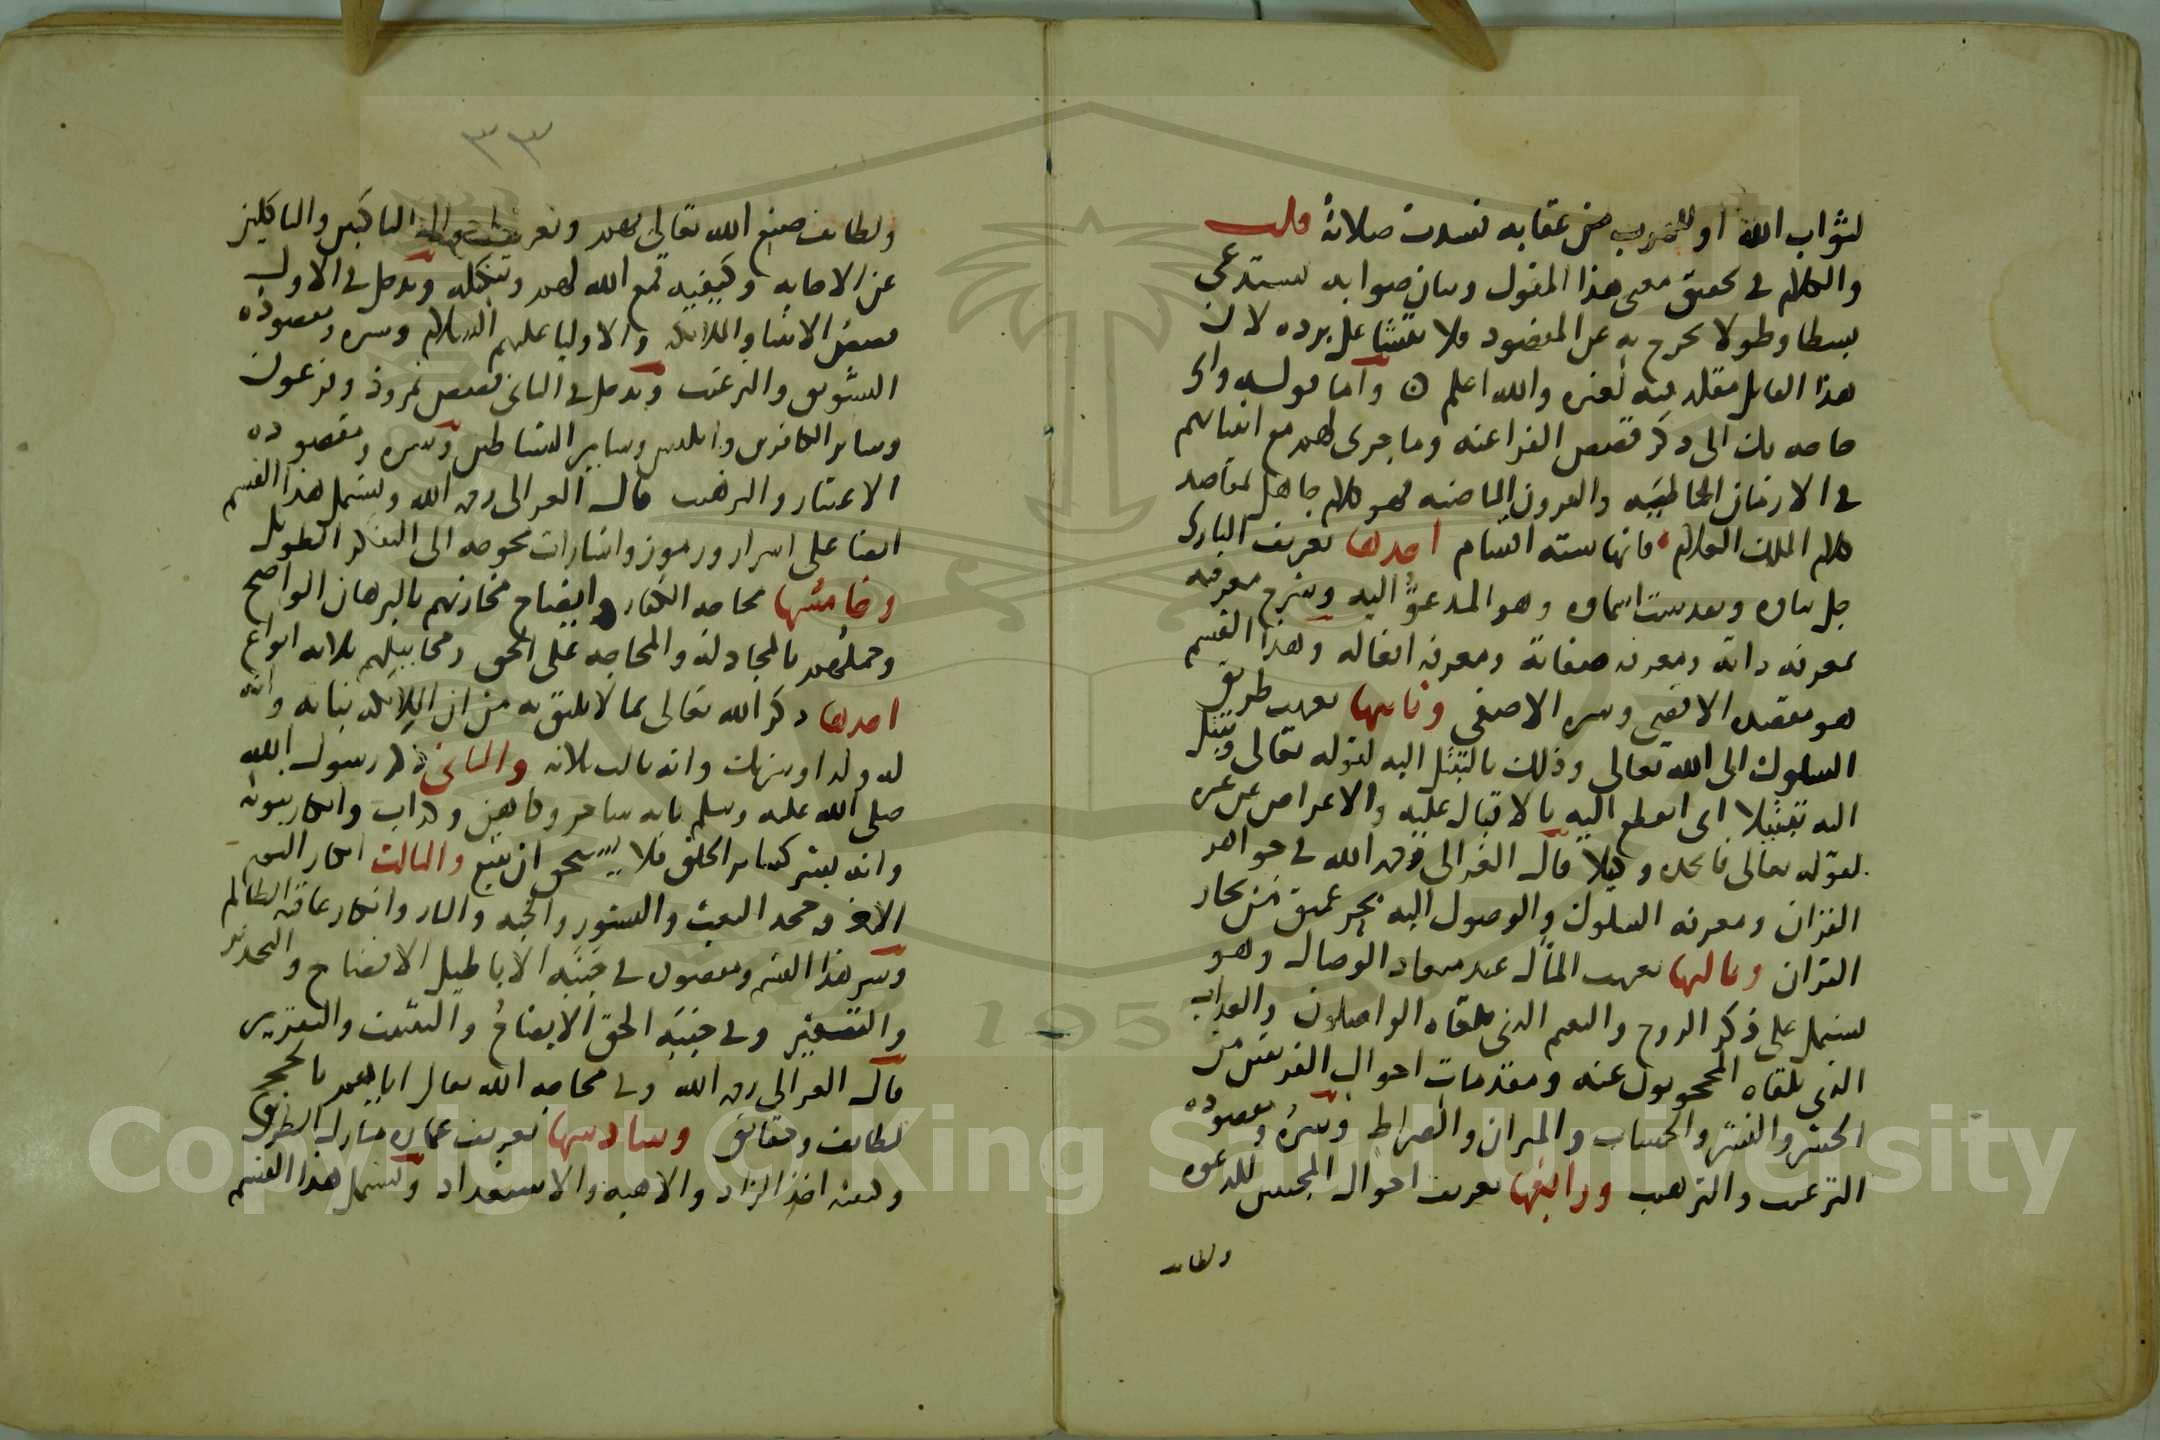 لثواب الله او للهرب من عقابه فسدت صلاته قلت
والكلام في تحقيق معنى هذا المنقول وبيان صوابه يستدعي
بسطا وطولا يخرج به عن المقصود فلا على برده لان
هذا القايل مقلد فيه لغيره والله اعلم ه واما قوله واي
حاجه بك الى ذكر قصص الفراعنه وما جرى لهم مع انبيائهم
في الازمان الخاطيه والقرون الماضيه فهو كلام جاهل بمقاصد
كلام الملك العلام فانها سته اقسام احدها تعريف الباري
جل ثناوه وتقدست اسماوه وهو المدعو اليه وشرح معرفته
بمعرفه ذاته ومعرفه صفاته ومعرفه افعاله وهذا القسم
هو مقصده الاقصى وسره الاصفى وثانيها تعريف طريق
السلوك الى الله تعالى وذلك بالتبتل اليه لقوله تعالى وتبتل
اليه تبتيلا اى انقطع اليه بالاقبال عليه والاعراض عن غيره
لقوله تعالى فاتخذه وكيلا قال الغزالي رحمه الله في جواهر
القران ومعرفه السلوك والوصول اليه بحر عميق من بحار
القران وثالثها تعريف المآل عند ميعاد الوصال وهو
يشتمل على ذكر الروح والنعيم الذي يلقاه الواصلون والعذاب
الذي يلقاه المحجوبون عنه ومقدمات احوال الفريقين من
الحشر والنشر والحساب والميزان والصراط وسره ومقصوده
الترغيب والترهيب ورابعها تعريف احوال المجيبين للدعوه
ولطايف
٣٣
ولطايف صنع الله تعالى بهم وتعريف الناكبين والناكلين
عن الاجابه وكيفيه قمع الله لهم وتنكيله ويدخل في الاول
قصص الانبيا والملائكه والاوليا عليهم السلام وسره ومقصوده
التشويق والترغيب ويدخل في الثاني قصص نمرود وفرعون
وساير الكافرين وابليس وساير الشياطين وسره ومقصوده
الاعتبار والترهيب قال الغزالي رحمه الله ويشتمل هذا القسم
ايضا على اسرار ورموز واشارات محوجه الى التفكر الطويل
وخامسها محاجه الكفار وايضاح مخازيهم بالبرهان الواضح
وحملهم بالمجادله والمحاجه على الحق ثلاثه انواع
احدها ذكر الله تعالى بما لا يليق به من ان الملائكه بناته وانه
له ولدا وشريك وانه ثالث ثلاثه والثاني ذكر رسول الله
صلى الله عليه وسلم بانه ساحر وكاهن وكذاب وانكار نبوته
وانه بشر كساير الخلق فلا يستحق ان يتبع والثالث انكار اليوم
الاخر وجحد البعث والنشور والجنه والنار وانكار عاقبه الظالم
وسر هذا القسم ومقصوده في جنبه الاباطيل الافضاح والتحذير
والتنفير وفي جنبه الحق الايضاح والتثبت والتقرير
قال الغزالي رحمه الله وفي محاجه الله تعالى اياهم بالحجج
لطايف وحقايق وسادسها تعريف عماره منازل الطريق
وكيفيه اخذ الزاد والاهبه والاستعداد ويشتمل هذا القسم
Copyright © King Saud University
1957